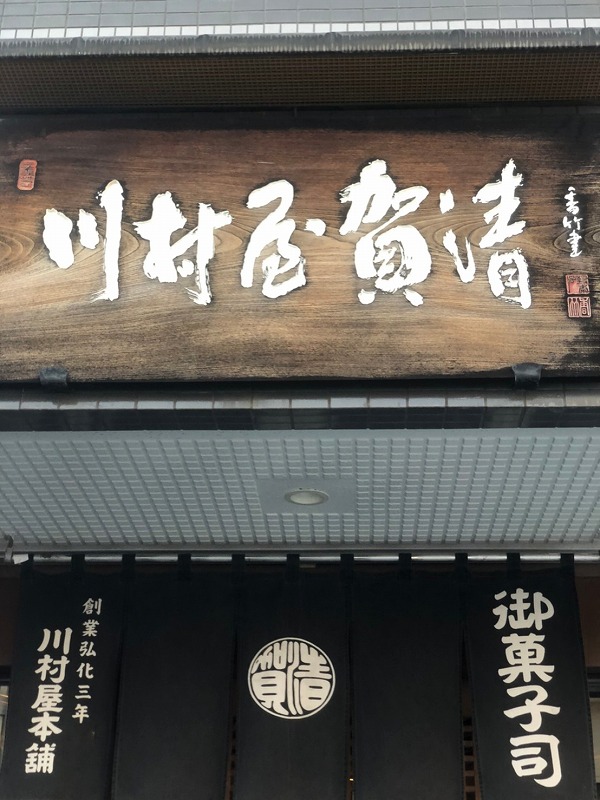 清賀屋村川
香竹書
御菓子司
清賀
創業弘化三年
川村屋本舗